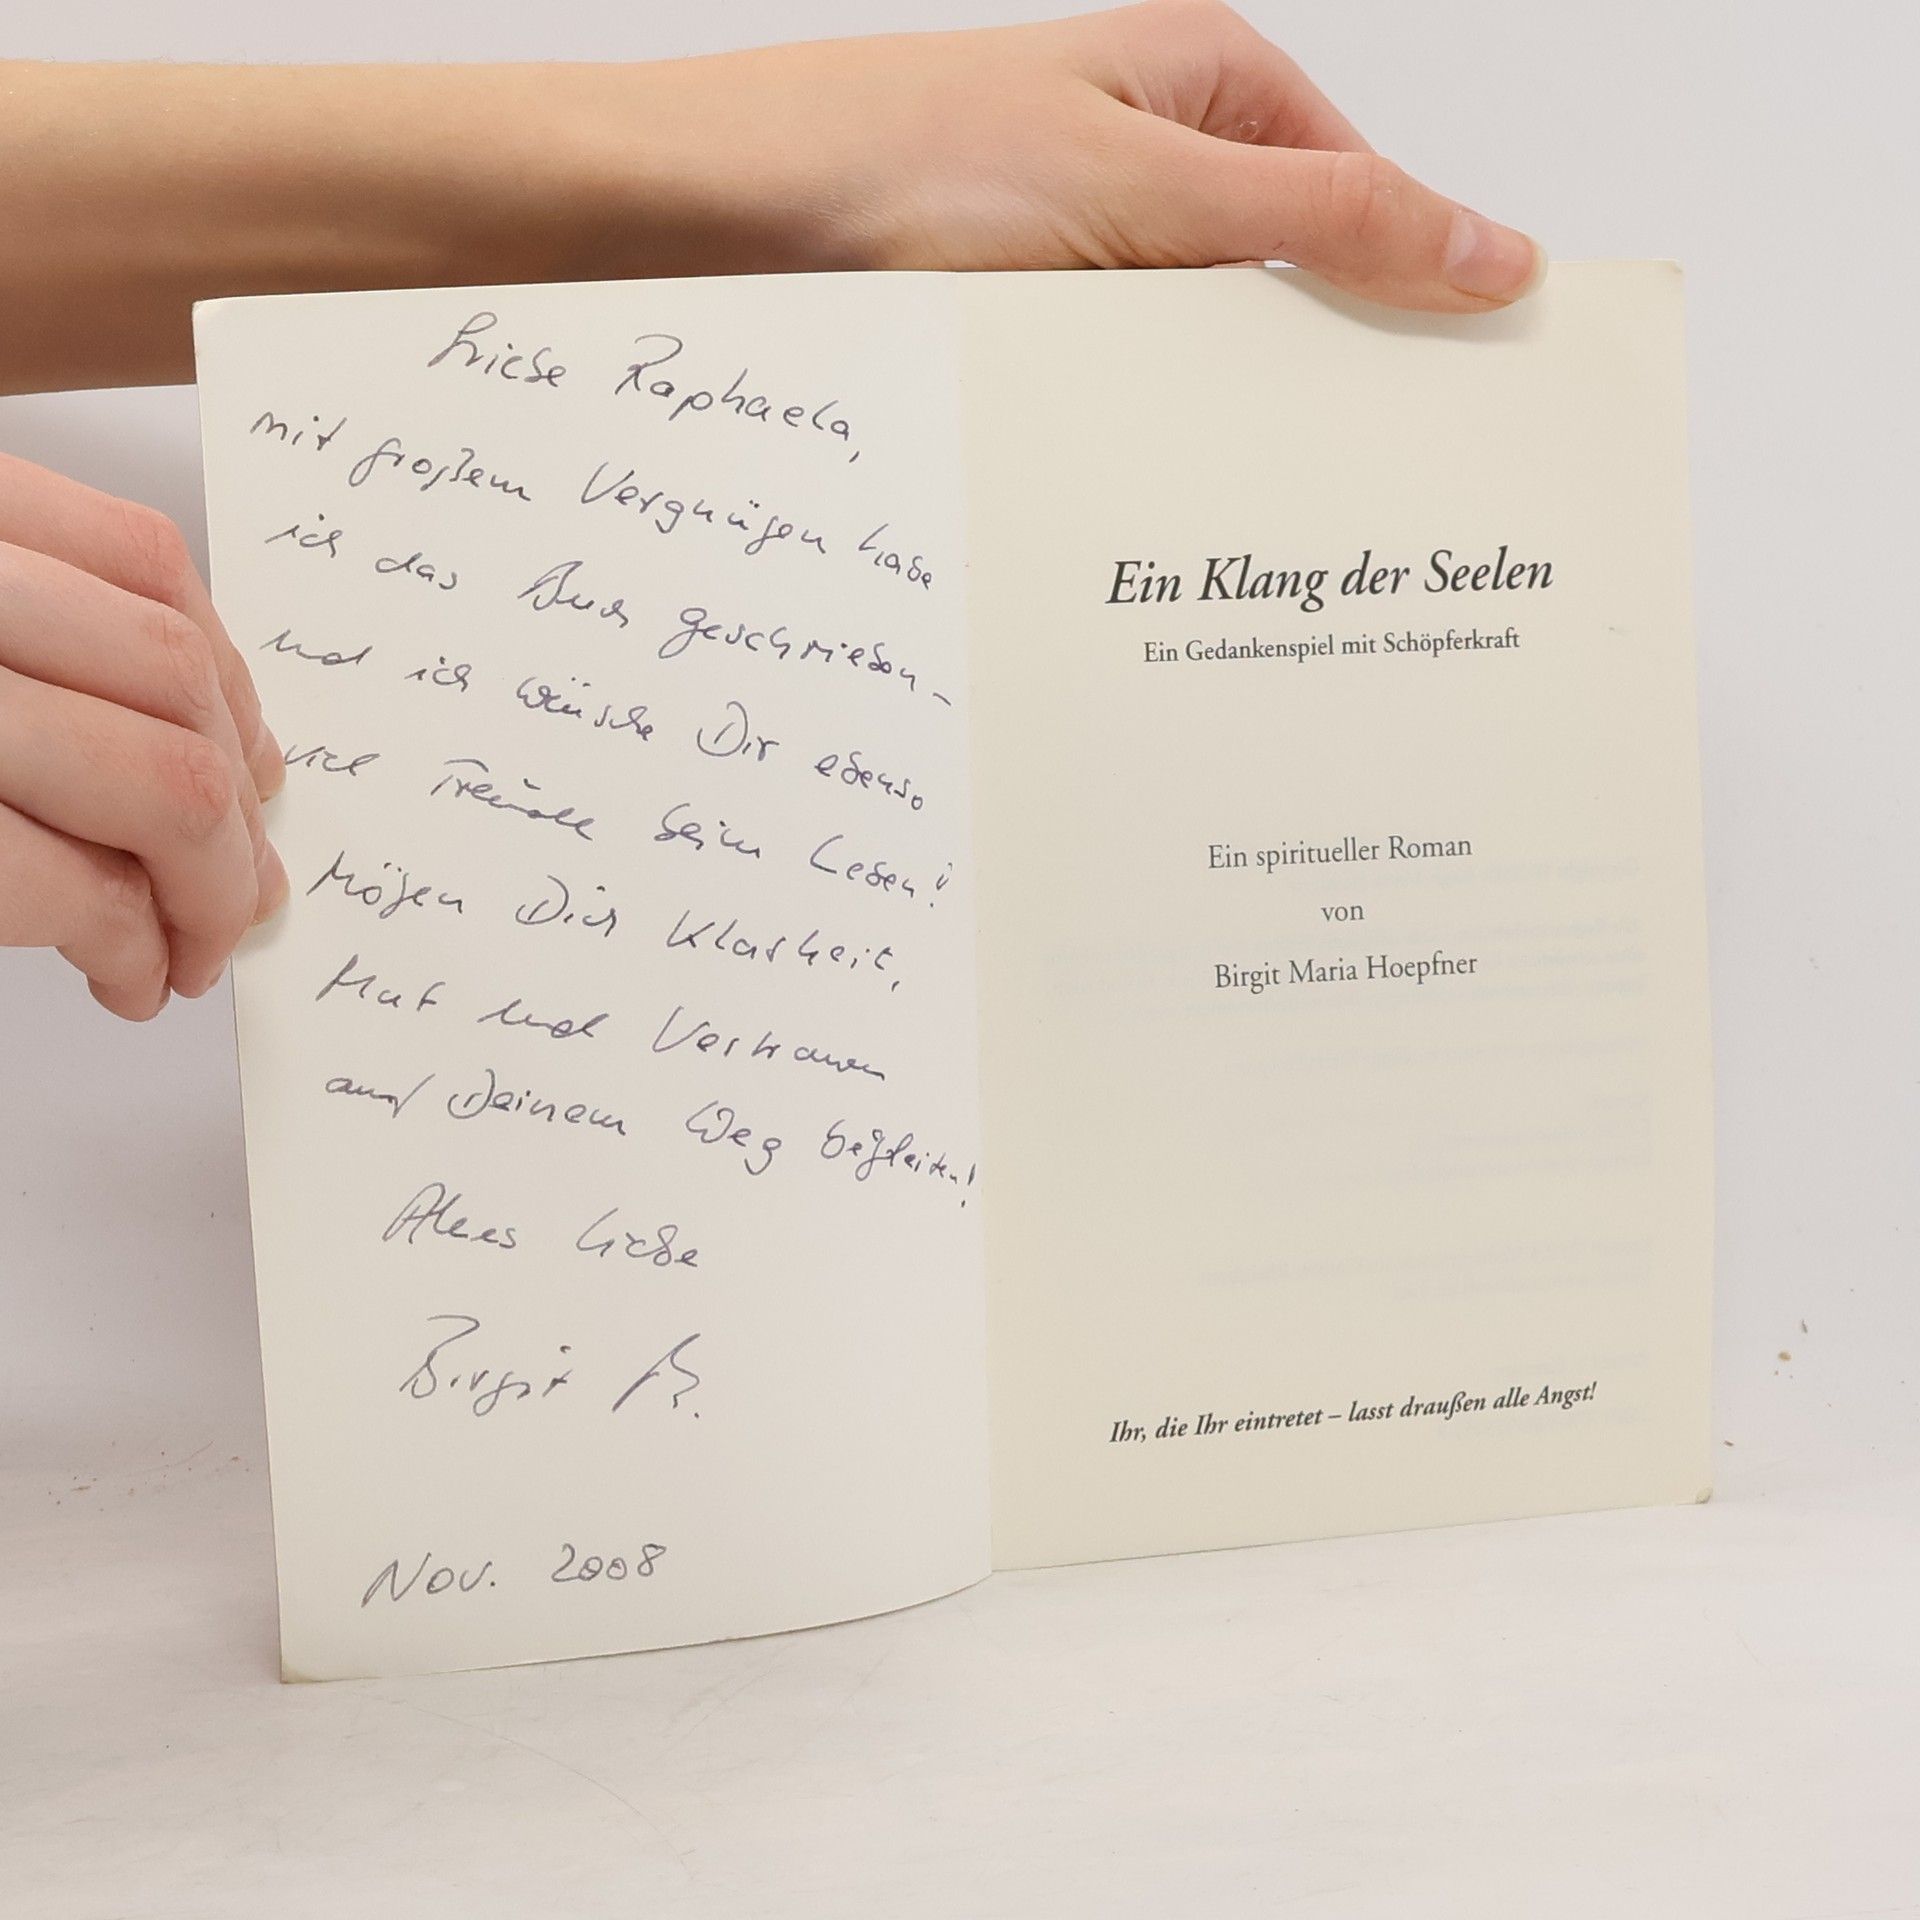 Liebe Raphaela,
mit großem Vergnügen habe
ich das Buch geschrieben –
und ich wünsche Dir ebenso
viel Freude beim Lesen!
Mögen Dich Klarheit,
Mut und Vertrauen
auf Deinem Weg begleiten!
Alles Liebe
Birgit
Nov. 2008
Ein Klang der Seelen
Ein Gedankenspiel mit Schöpferkraft
Ein spiritueller Roman
von
Birgit Maria Hoepfner
Ihr, die Ihr eintretet – lasst draußen alle Angst!